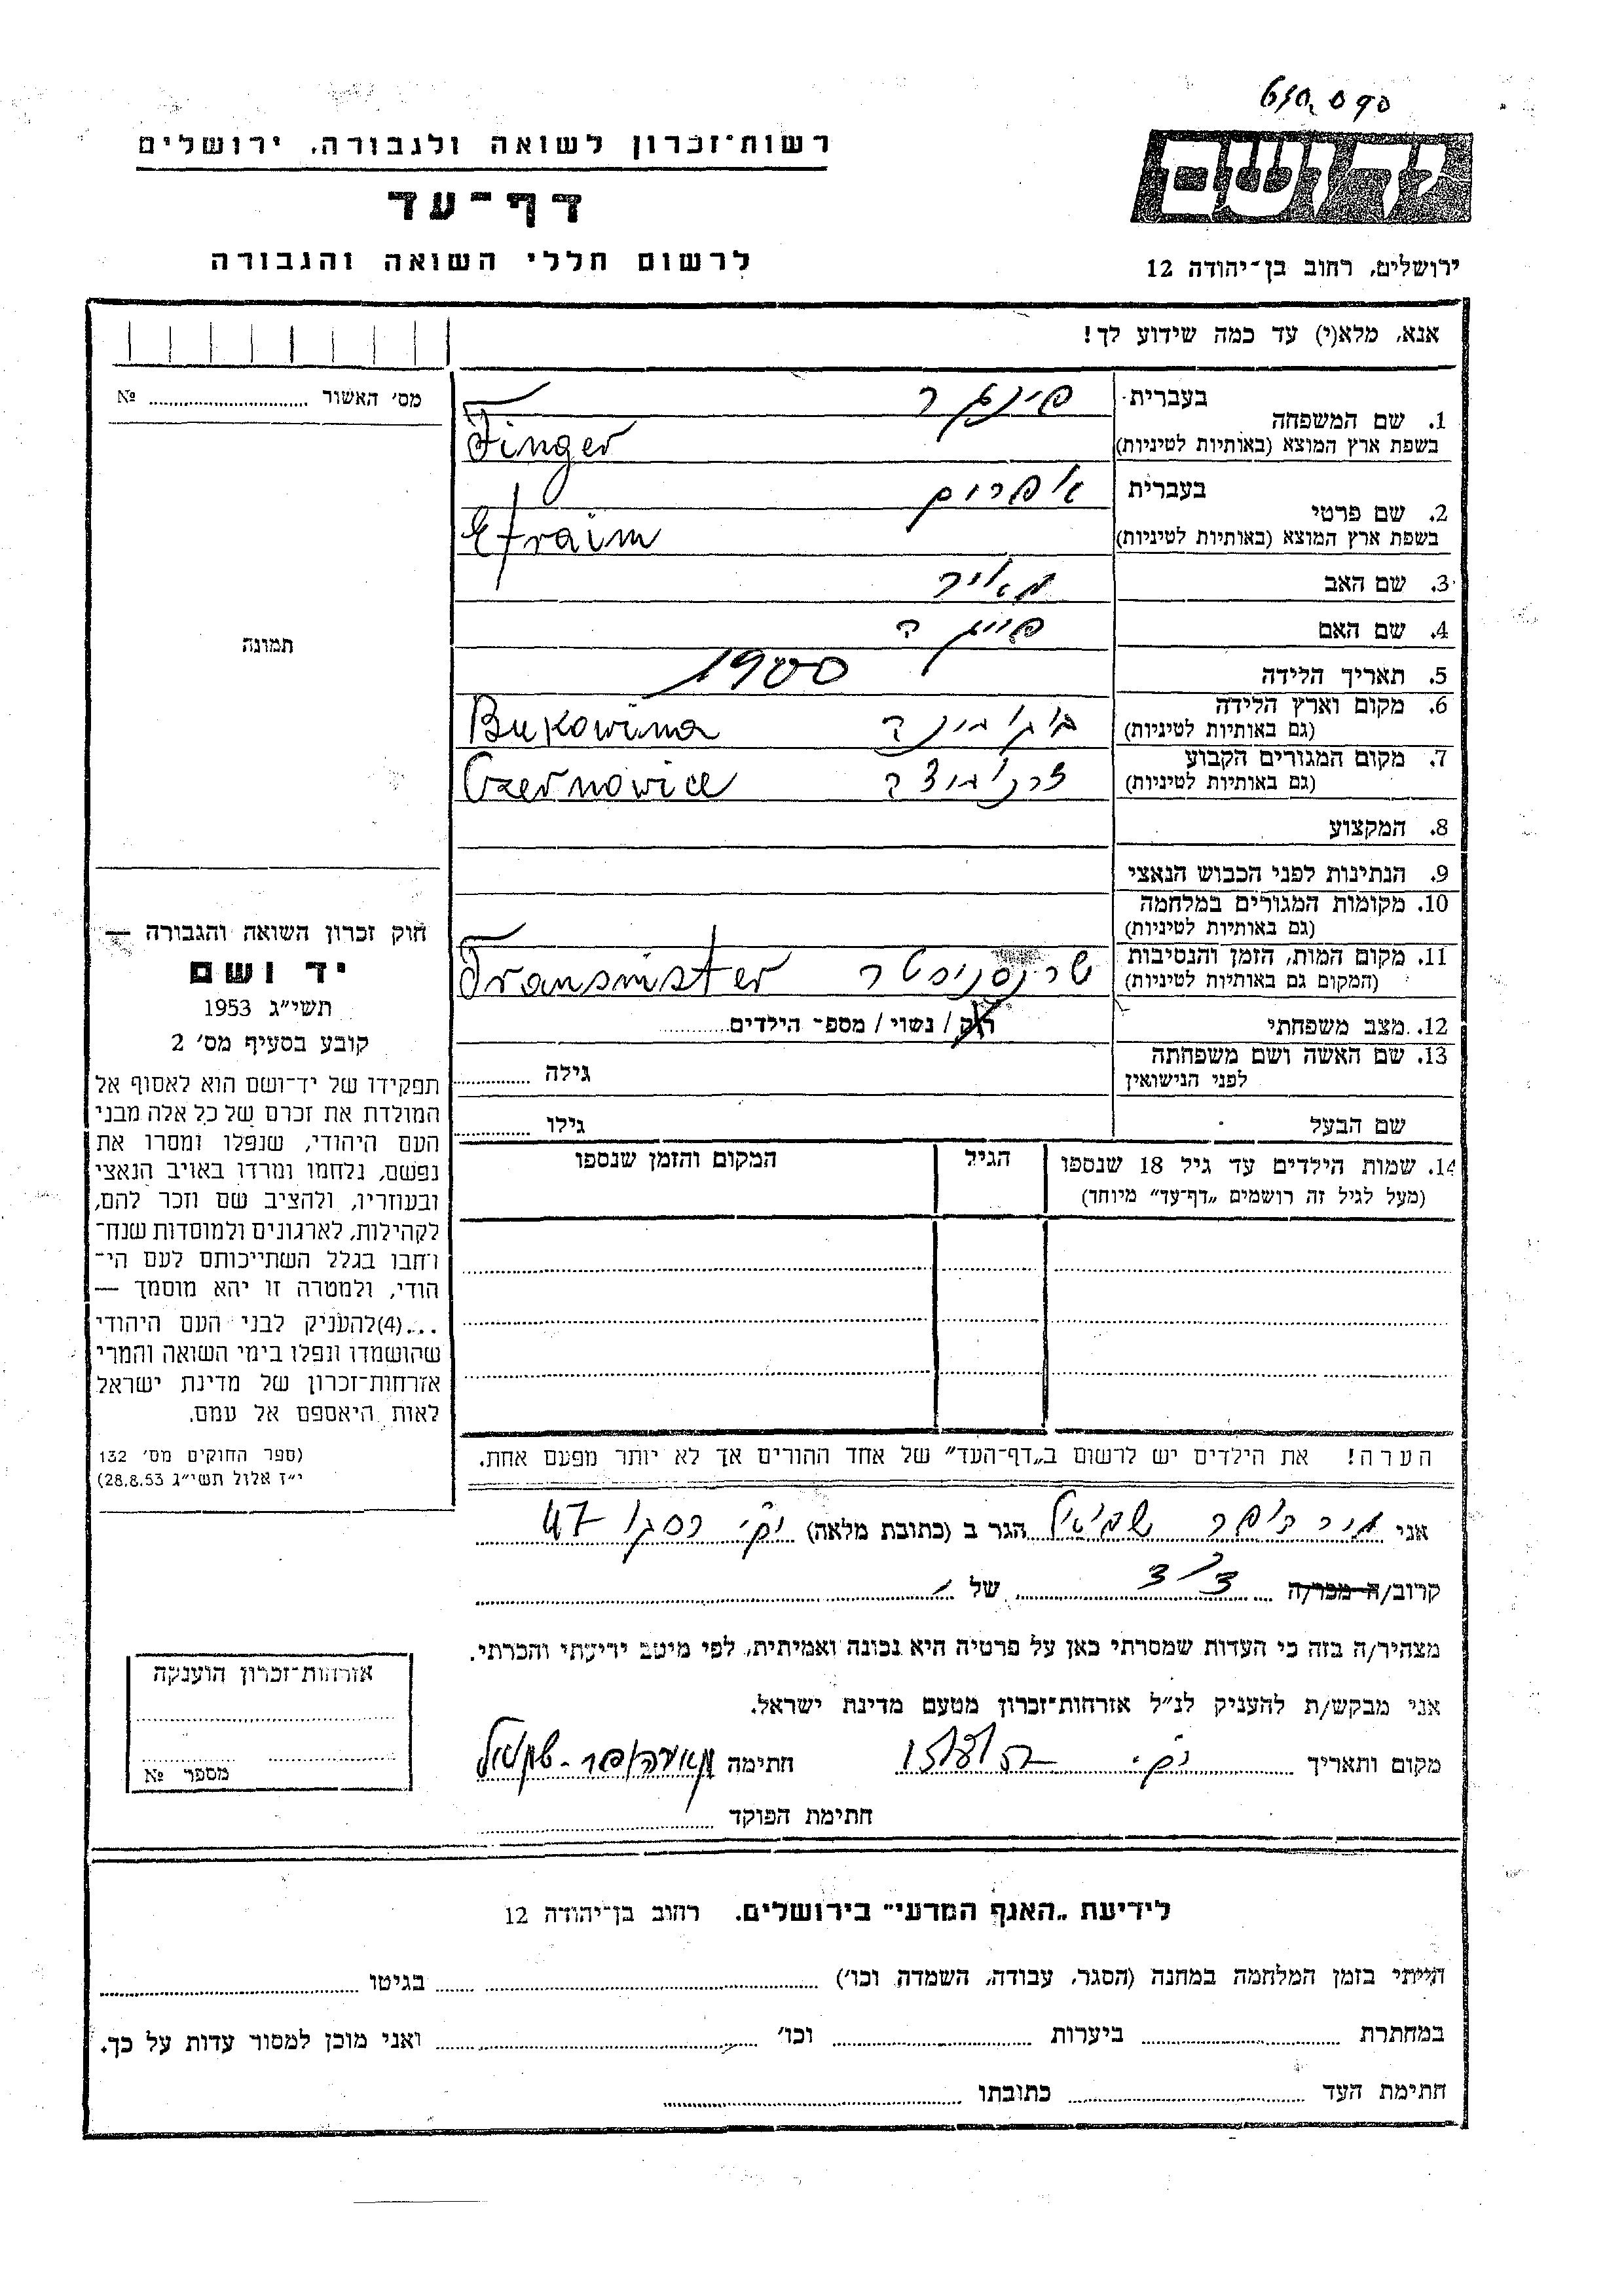 610,090
רשות־זכרון לשואה ולגבורה. ירושלים
יד ושם
דף־עד
לרשום חללי השואה והגבורה
ירושלים, רחוב בן־יהודה 12
אנא, מלא(י) עד כמה שידוע לך!
מס׳ האשור ........ №
בעברית פינגר
1. שם המשפחה
בשפת ארץ המוצא (באותיות לטיניות) Finger
בעברית אפרים
2. שם פרטי
בשפת ארץ המוצא (באותיות לטיניות) Efraim
3. שם האב מאיר
4. שם האם
5. תאריך הלידה 1900
6. מקום וארץ הלידה
(גם באותיות לטיניות) בוקובינה Bukowina
7. מקום המגורים הקבוע
(גם באותיות לטיניות) Czernowice
8. המקצוע
9. הנתינות לפני הכבוש הנאצי
10. מקומות המגורים במלחמה
(גם באותיות לטיניות)
11. מקום המות, הזמן והנסיבות
(המקום גם באותיות לטיניות) טרנסניסטר Transnister
12. מצב משפחתי רוק / נשוי / מספ־ הילדים........
13. שם האשה ושם משפחתה
לפני הנישואין גילה ........
שם הבעל גילו ........
14. שמות הילדים עד גיל 18 שנספו הגיל המקום והזמן שנספו
(מעל לגיל זה רושמים „דף־עד” מיוחד)
הערה! את הילדים יש לרשום ב„דף־העד” של אחד ההורים אך לא יותר מפעם אחת.
תמונה
חוק זכרון השואה והגבורה —
יד ושם
תשי״ג 1953
קובע בסעיף מס׳ 2
תפקידו של יד־ושם הוא לאסוף אל
המולדת את זכרם של כל אלה מבני
העם היהודי, שנפלו ומסרו את
נפשם, נלחמו ומרדו באויב הנאצי
ובעוזריו, ולהציב שם וזכר להם,
לקהילות, לארגונים ולמוסדות שנח־
רחבו בגלל השתייכותם לעם הי־
הודי, ולמטרה זו יהא מוסמך —
...(4) להעניק לבני העם היהודי
שהושמדו ונפלו בימי השואה והמרי
אזרחות־זכרון של מדינת ישראל
לאות היאספם אל עמם.
(ספר החוקים מס׳ 132
י״ז אלול תשי״ג 28.8.53)
אני שמואל הגר ב (כתובת מלאה) 47
קרוב/ה מכר/ה דוד של
מצהיר/ה בזה כי העדות שמסרתי כאן על פרטיה היא נכונה ואמיתית, לפי מיטב ידיעתי והכרתי.
אני מבקש/ת להעניק לנ״ל אזרחות־זכרון מטעם מדינת ישראל.
מקום ותאריך חתימה
חתימת הפוקד
אזרחות־זכרון הוענקה
מספר №
לידיעת „האגף המדעי” בירושלים. רחוב בן־יהודה 12
הייתי בזמן המלחמה במחנה (הסגר, עבודה, השמדה וכו׳) ........ בגיטו ........
במחתרת ........ ביערות ........ וכו׳ ........ ואני מוכן למסור עדות על כך.
חתימת העד ........ כתובתו ........